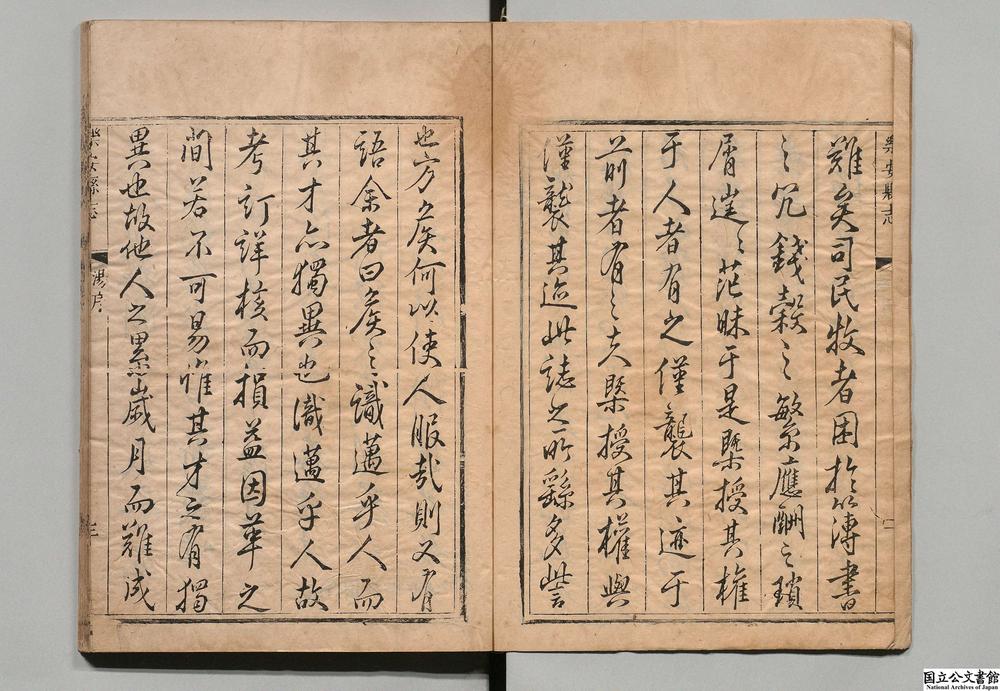 樂安縣志
難矣司民牧者困扵簿書
之冗錢穀之繁應酬之瑣
屑遑〻茫昧于是槩授其權
于人者有之僅襲其迹于
前者有〻夫槩授其權與
僅襲其迹此誌之所繇多訾
也方侯何以使人服哉則又有
語余者曰侯〻識邁乎人而
其才亦獨異也識邁乎人故
考訂詳核而損益因革之
間若不可易惟其才之有獨
異也故他人之累歲月而難成
樂安縣志
三
国立公文書館
National Archives of Japan